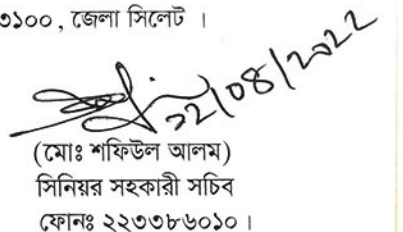 ৩১০০, জেলা সিলেট ।
(মোঃ শফিউল আলম)
সিনিয়র সহকারী সচিব
ফোনঃ ২২৩৩৮৬০১০।